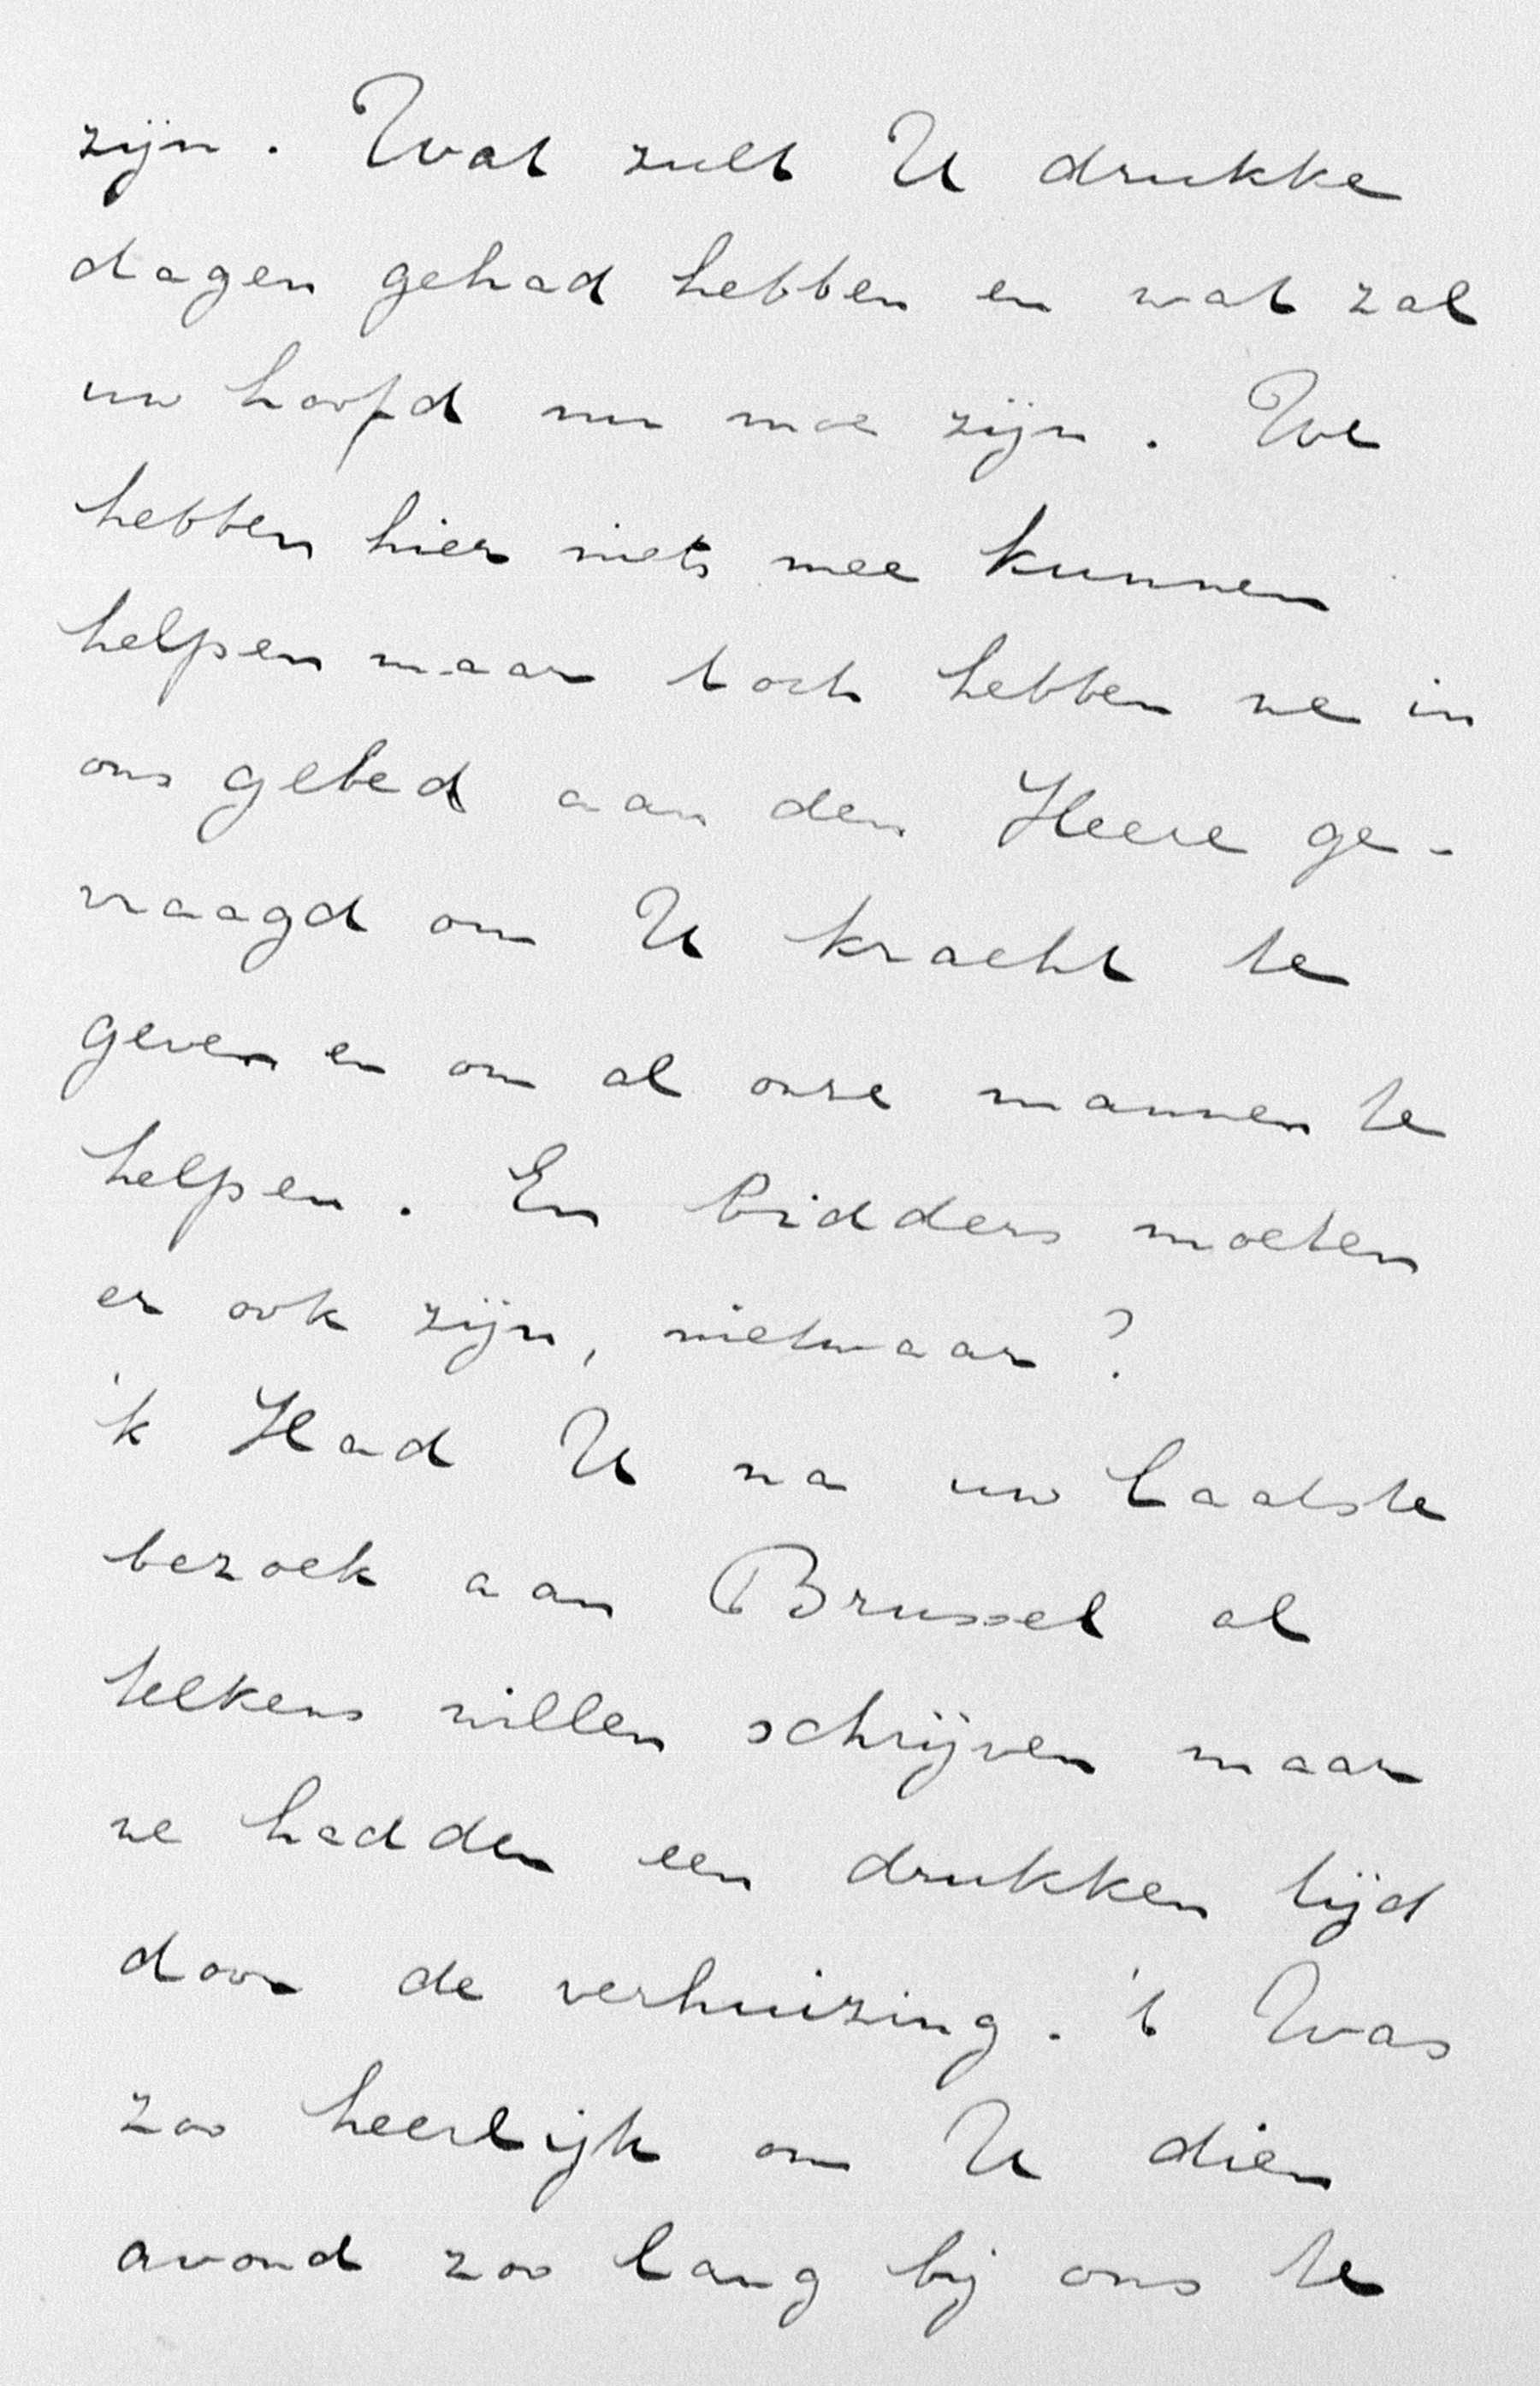 zijn. Wat zult U drukke
dagen gehad hebben en wat zal
uw hoofd nu moe zijn. We
hebben hier niets mee kunnen
helpen maar toch hebben we in
ons gebed aan den Heere ge-
vraagd om U kracht te
geven en om al onze mannen te
helpen. En bidders moeten
er ook zijn, nietwaar?
'k Had U na uw laatste
bezoek aan Brussel al
telkens willen schrijven maar
we hadden een drukken tijd
door de verhuizing. 't Was
zoo heerlijk om U dien
avond zoo lang bij ons te